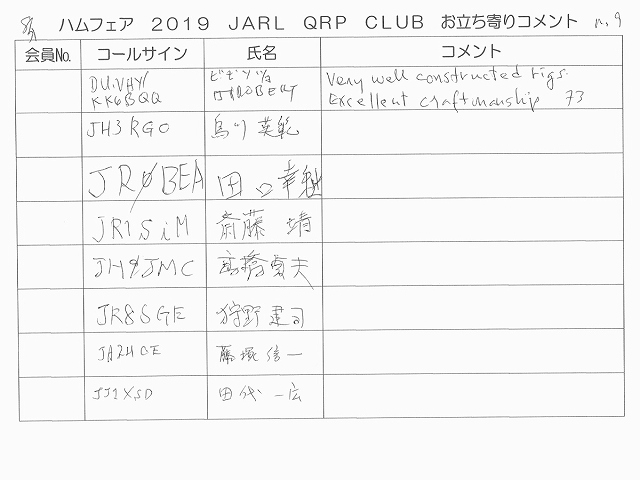 ハムフェア 2019 JARL QRP CLUB お立ち寄りコメント n.9
会員No. コールサイン 氏名 コメント
DU1VHY/ Very well constructed rigs.
KK6BQQ Excellent craftmanship 73
JH3RGO
JR0BEA 田口幸雄
JR1SiM 斎藤 靖
JH9JMC 高橋夫
JR8SGE 狩野建司
JA2HCE 藤塚信一
JJ1XSD 田代一広